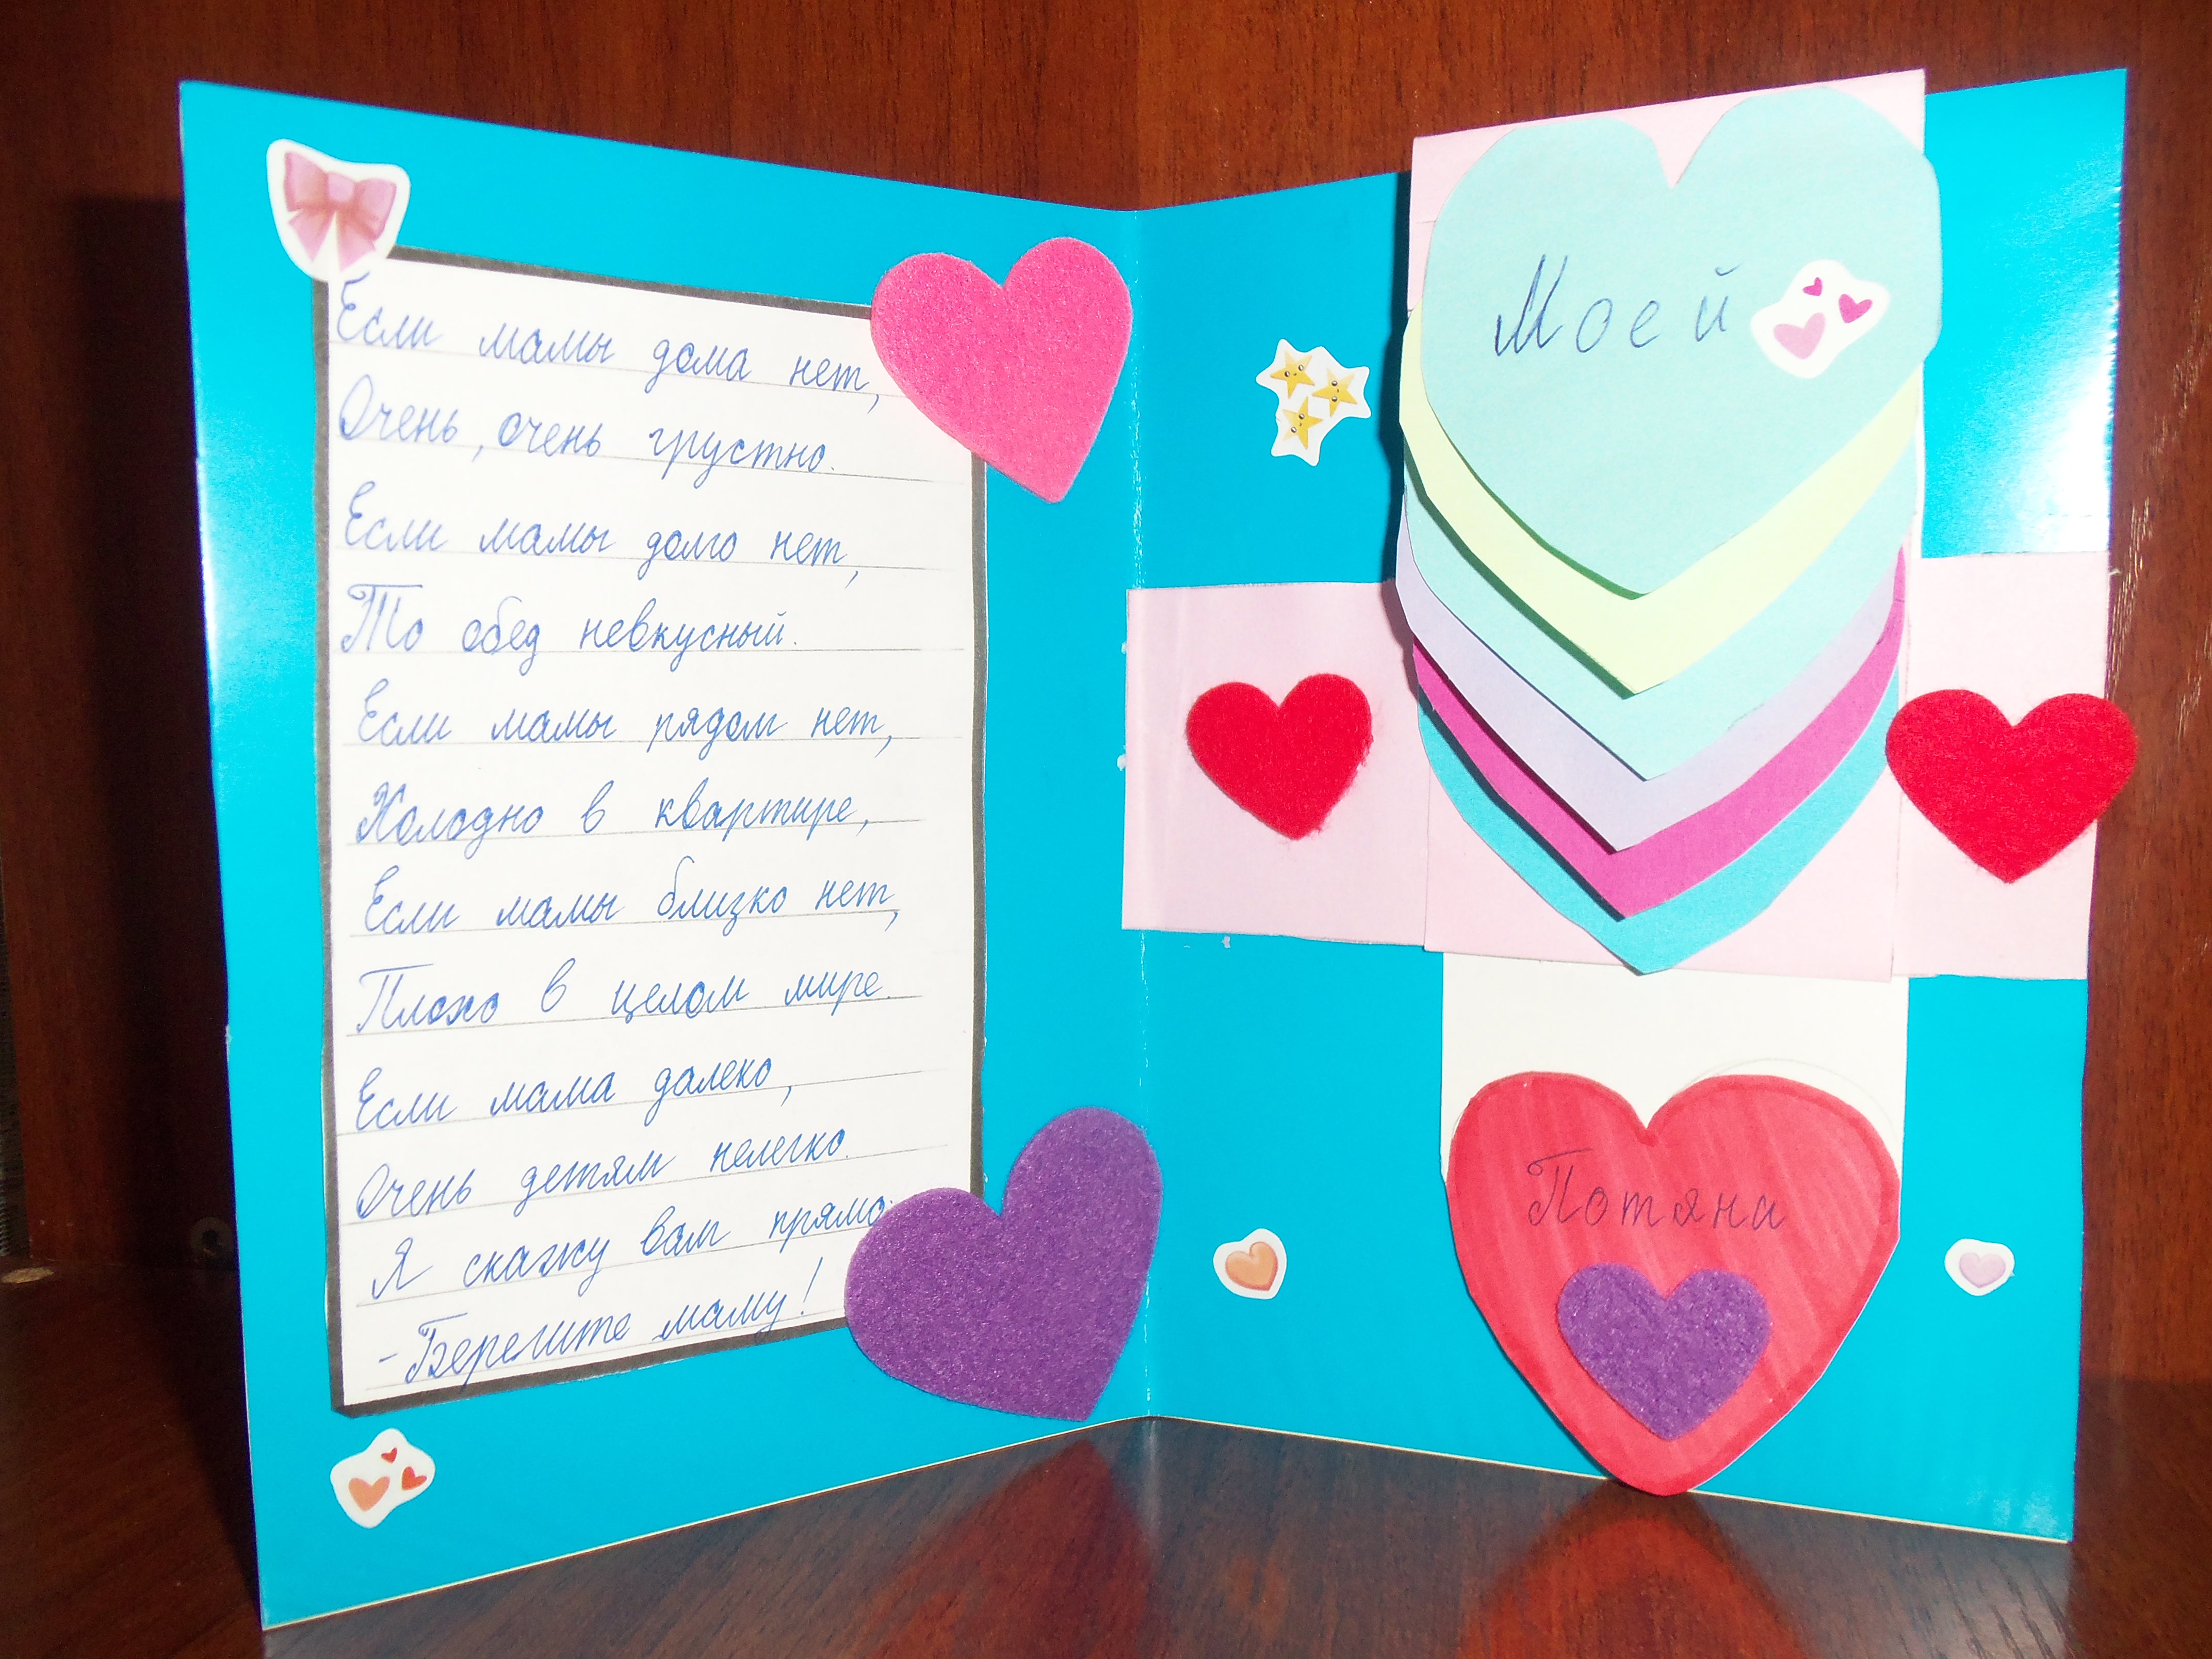 Если мамы дома нет,
Очень, очень грустно.
Если мамы долго нет,
То обед невкусный.
Если мамы рядом нет,
Холодно в квартире,
Если мамы близко нет,
Плохо в целом мире.
Если мама далеко,
Очень детям нелегко.
Я скажу вам прямо:
-Берегите маму!
Моей
Потяни